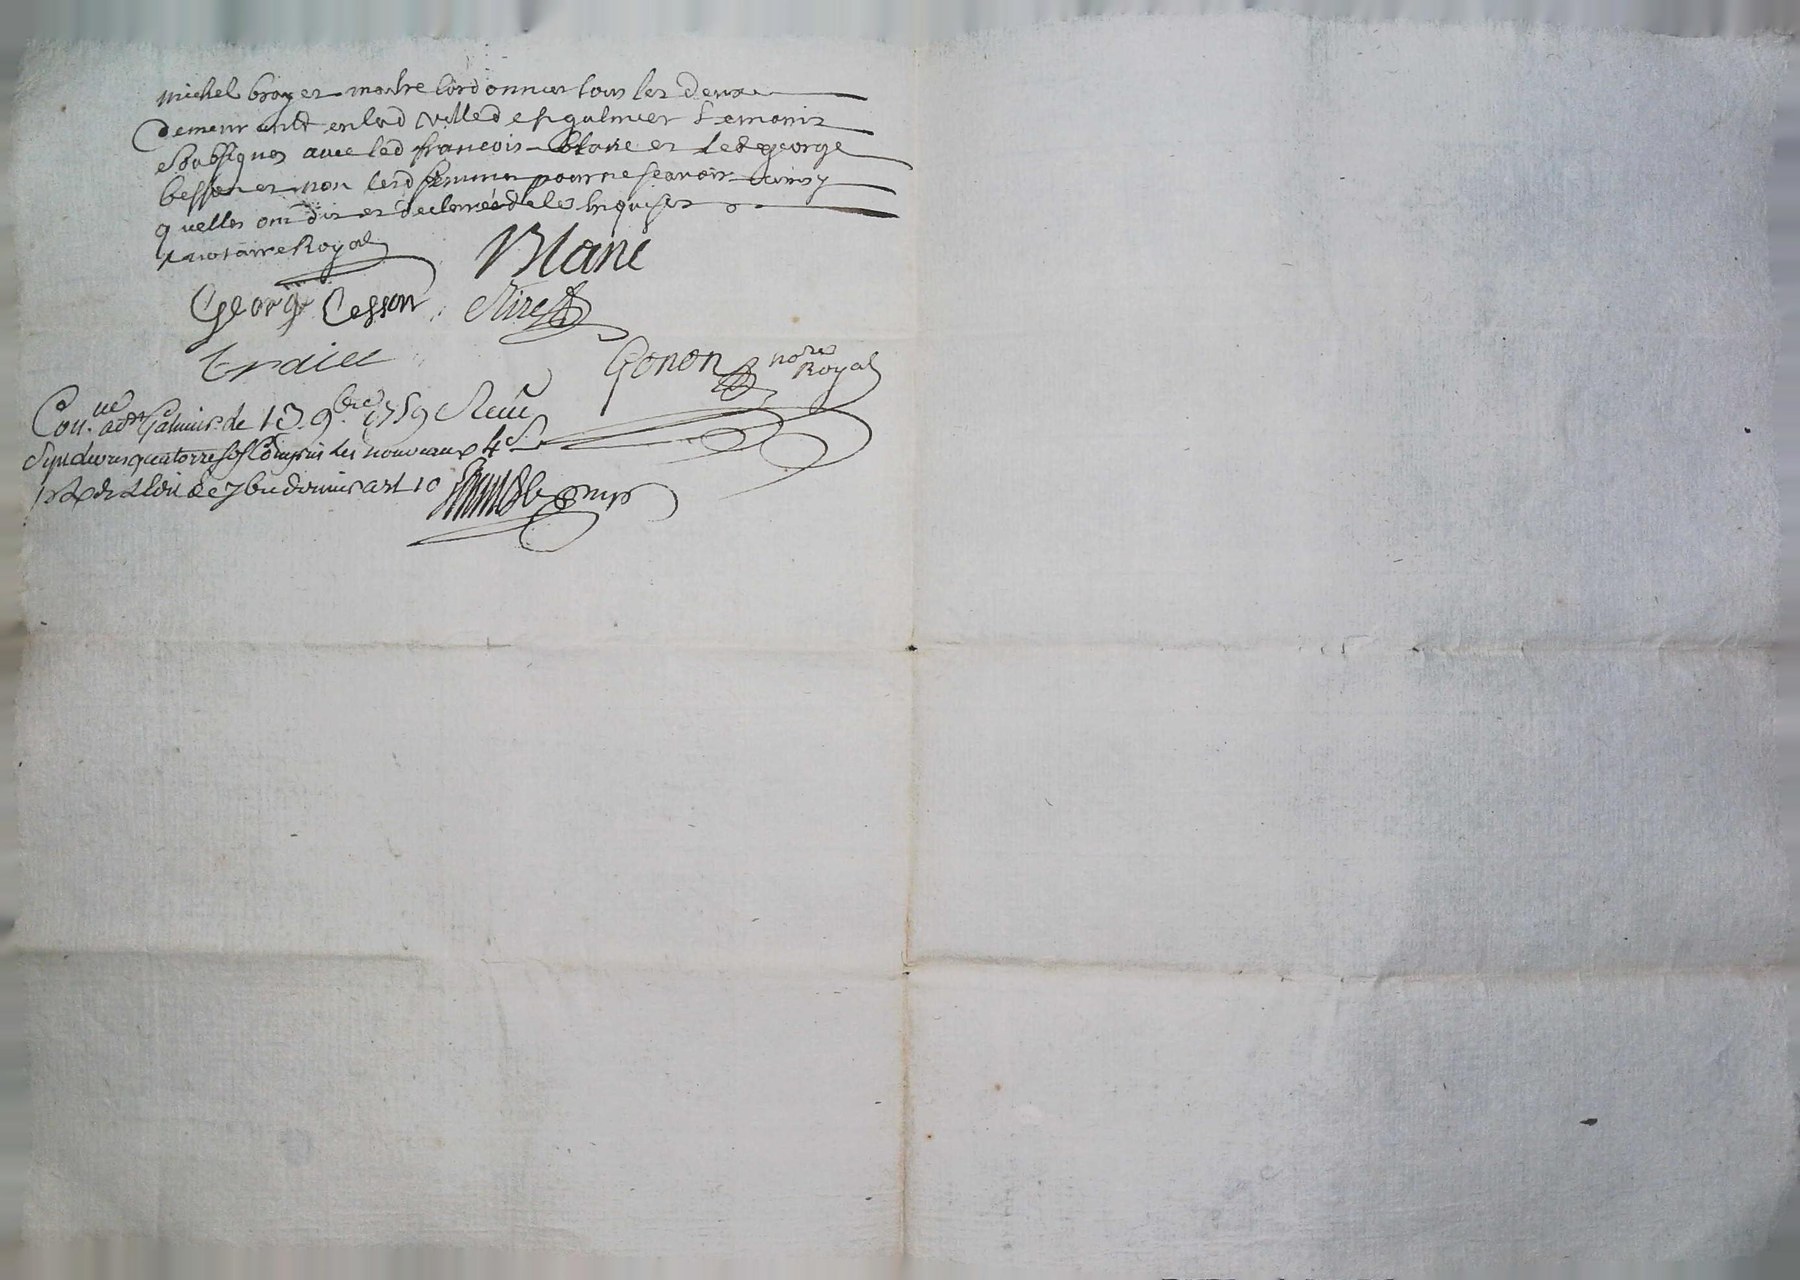 michel broyer maistre Cordonnier tous les deux
demeurant en lad ville de st galmier temoins
Soubsignes avec led francois Blanc et led george
besson et non lesd femmes pour ne scavoir ainsy
quelles ont dit et declaré de ce Enquises
notaire Royal
Blanc
George Besson
Traill
Gonon nore Royal
Con.lle a st Galmier le 13 9bre 1759 Receu
quatorze sols Compris les nouveaux 4 s
de 7bre dernier art 10